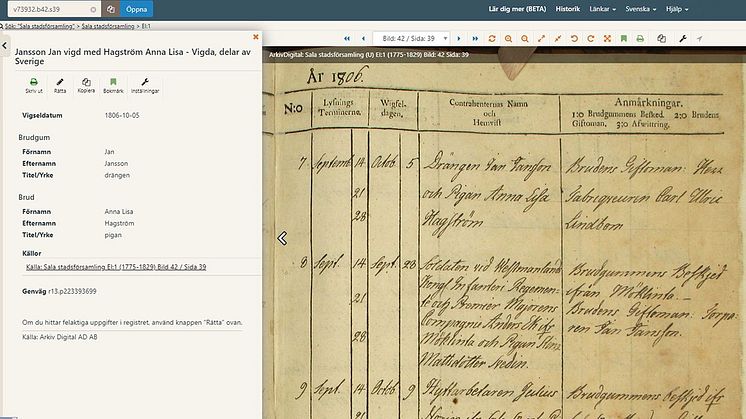 v73932.b42.s39
Öppna
Lär dig mer (BETA)
Historik
Länkar
Svenska
Hjälp
Sök: "Sala stadsförsamling" > Sala stadsförsamling > EI:1
Bild: 42 / Sida: 39
Jansson Jan vigd med Hagström Anna Lisa - Vigda, delar av
Sverige
Skriv ut
Rätta
Kopiera
Bokmärk
Inställningar
Vigseldatum 1806-10-05
Brudgum
Förnamn Jan
Efternamn Jansson
Titel/Yrke drängen
Brud
Förnamn Anna Lisa
Efternamn Hagström
Titel/Yrke pigan
Källor
Källa: Sala stadsförsamling EI:1 (1775-1829) Bild 42 / Sida 39
Genväg r13.p223393699
Om du hittar felaktiga uppgifter i registret, använd knappen "Rätta" ovan.
Källa: Arkiv Digital AD AB
ArkivDigital: Sala stadsförsamling (U) EI:1 (1775-1829) Bild: 42 Sida: 39
År 1806.
N:o
Lysnings
Terminerne.
Wigsel-
dagen.
Contrahenternas Namn
och
Hemvist
Anmärkningar.
1:o Brudgummens Besked. 2:o Brudens
Giftoman. 3:o Afwittring.
7 Septemb. 14 Octob. 5 Drängen Jan Jansson Brudens Giftoman: Herr
21 och Pigan Anna Lisa Fabriqueuren Carl Ulric
28 Hagström Lindbom
8 Sept. 14 Sept. 28 Soldaten vid Westmanland
Brudgummens Beskjed
Kongl Infanteri Regemen-
ifrån Möklinta. –
21 te och Premier Majorens
Brudens Giftoman: Torpa-
Compagnie Anders ifr.
ren Jan Jansson.
28 Möklinta och Pigan
Mattsdotter Svedin.
9 Sept. 14 Octob. 9 Hyttarbetaren Julius Brudgummens beskjed ifr